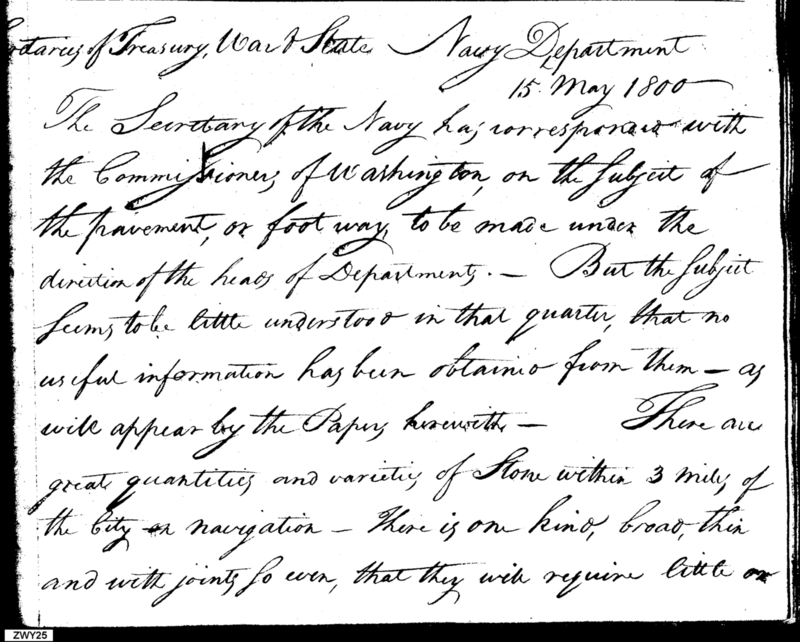 retaries of Treasury, War & State Navy Department
15 May 1800
The Secretary of the Navy has corresponded with
the Commissioners of Washington, on the subject of
the pavement, or foot way, to be made under the
direction of the heads of Departments. — But the subject
seems to be little understood in that quarter, that no
useful information has been obtained from them — as
will appear by the Papers herewith — There are
great quantities and varieties of Stone within 3 miles of
the City on navigation — There is one kind, broad, thin
and with joints so even, that they will require little or
ZWY25